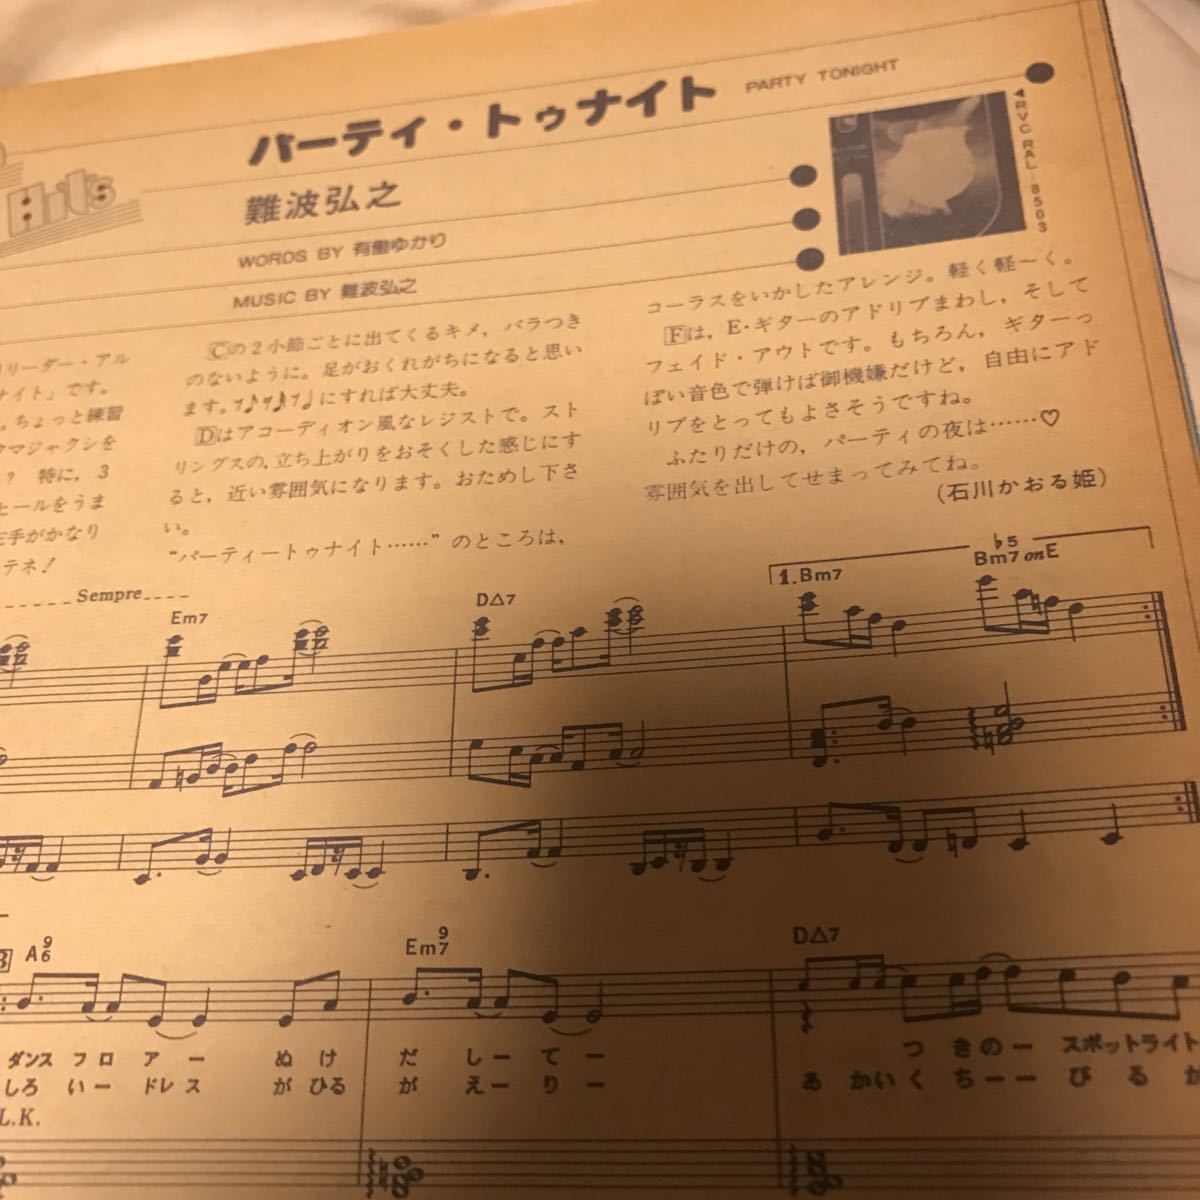 パーティ・トゥナイト PARTY TONIGHT
Hits
難波弘之
WORDS BY 有働ゆかり
MUSIC BY 難波弘之
◀RVC RAL-8503
リーダー・アル
ナイト」です。
。ちょっと練習
タマジャクシを
? 特に，3
ヒールをうま
左手がかなり
テネ！
Cの2小節ごとに出てくるキメ，バラつき
のないように。足がおくれがちになると思い
ます。にすれば大丈夫。
Dはアコーディオン風なレジストで。スト
リングスの，立ち上がりをおそくした感じにす
ると，近い雰囲気になります。おためし下さ
い。
“パーティートゥナイト……”のところは，
コーラスをいかしたアレンジ。軽く軽〜く。
Fは，E・ギターのアドリブまわし，そして
フェイド・アウトです。もちろん，ギターっ
ぽい音色で弾けば御機嫌だけど，自由にアド
リブをとってもよさそうですね。
ふたりだけの，パーティの夜は……♡
雰囲気を出してせまってみてね。
(石川かおる姫)
Sempre
Em7 D△7 1.Bm7 Bm7♭5 onE
B A69 Em79 D△7
ダンスフロアー ぬけだしてー つきのースポットライト
しろいードレスがひるがえーりー あかいくちーーびるが
L.K.